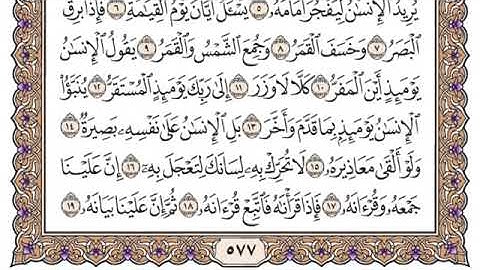 يُرِيدُ الْإِنسَٰنُ لِيَفْجُرَ أَمَامَهُۥ ٥ يَسْـَٔلُ أَيَّانَ يَوْمُ الْقِيَٰمَةِ ٦ فَإِذَا بَرِقَ
الْبَصَرُ ٧ وَخَسَفَ الْقَمَرُ ٨ وَجُمِعَ الشَّمْسُ وَالْقَمَرُ ٩ يَقُولُ الْإِنسَٰنُ
يَوْمَئِذٍ أَيْنَ الْمَفَرُّ ١٠ كَلَّا لَا وَزَرَ ١١ إِلَىٰ رَبِّكَ يَوْمَئِذٍ الْمُسْتَقَرُّ ١٢ يُنَبَّؤُا۟
الْإِنسَٰنُ يَوْمَئِذٍۭ بِمَا قَدَّمَ وَأَخَّرَ ١٣ بَلِ الْإِنسَٰنُ عَلَىٰ نَفْسِهِۦ بَصِيرَةٌ ١٤
وَلَوْ أَلْقَىٰ مَعَاذِيرَهُۥ ١٥ لَا تُحَرِّكْ بِهِۦ لِسَانَكَ لِتَعْجَلَ بِهِۦٓ ١٦ إِنَّ عَلَيْنَا
جَمْعَهُۥ وَقُرْءَانَهُۥ ١٧ فَإِذَا قَرَأْنَٰهُ فَاتَّبِعْ قُرْءَانَهُۥ ١٨ ثُمَّ إِنَّ عَلَيْنَا بَيَانَهُۥ ١٩
٥٧٧